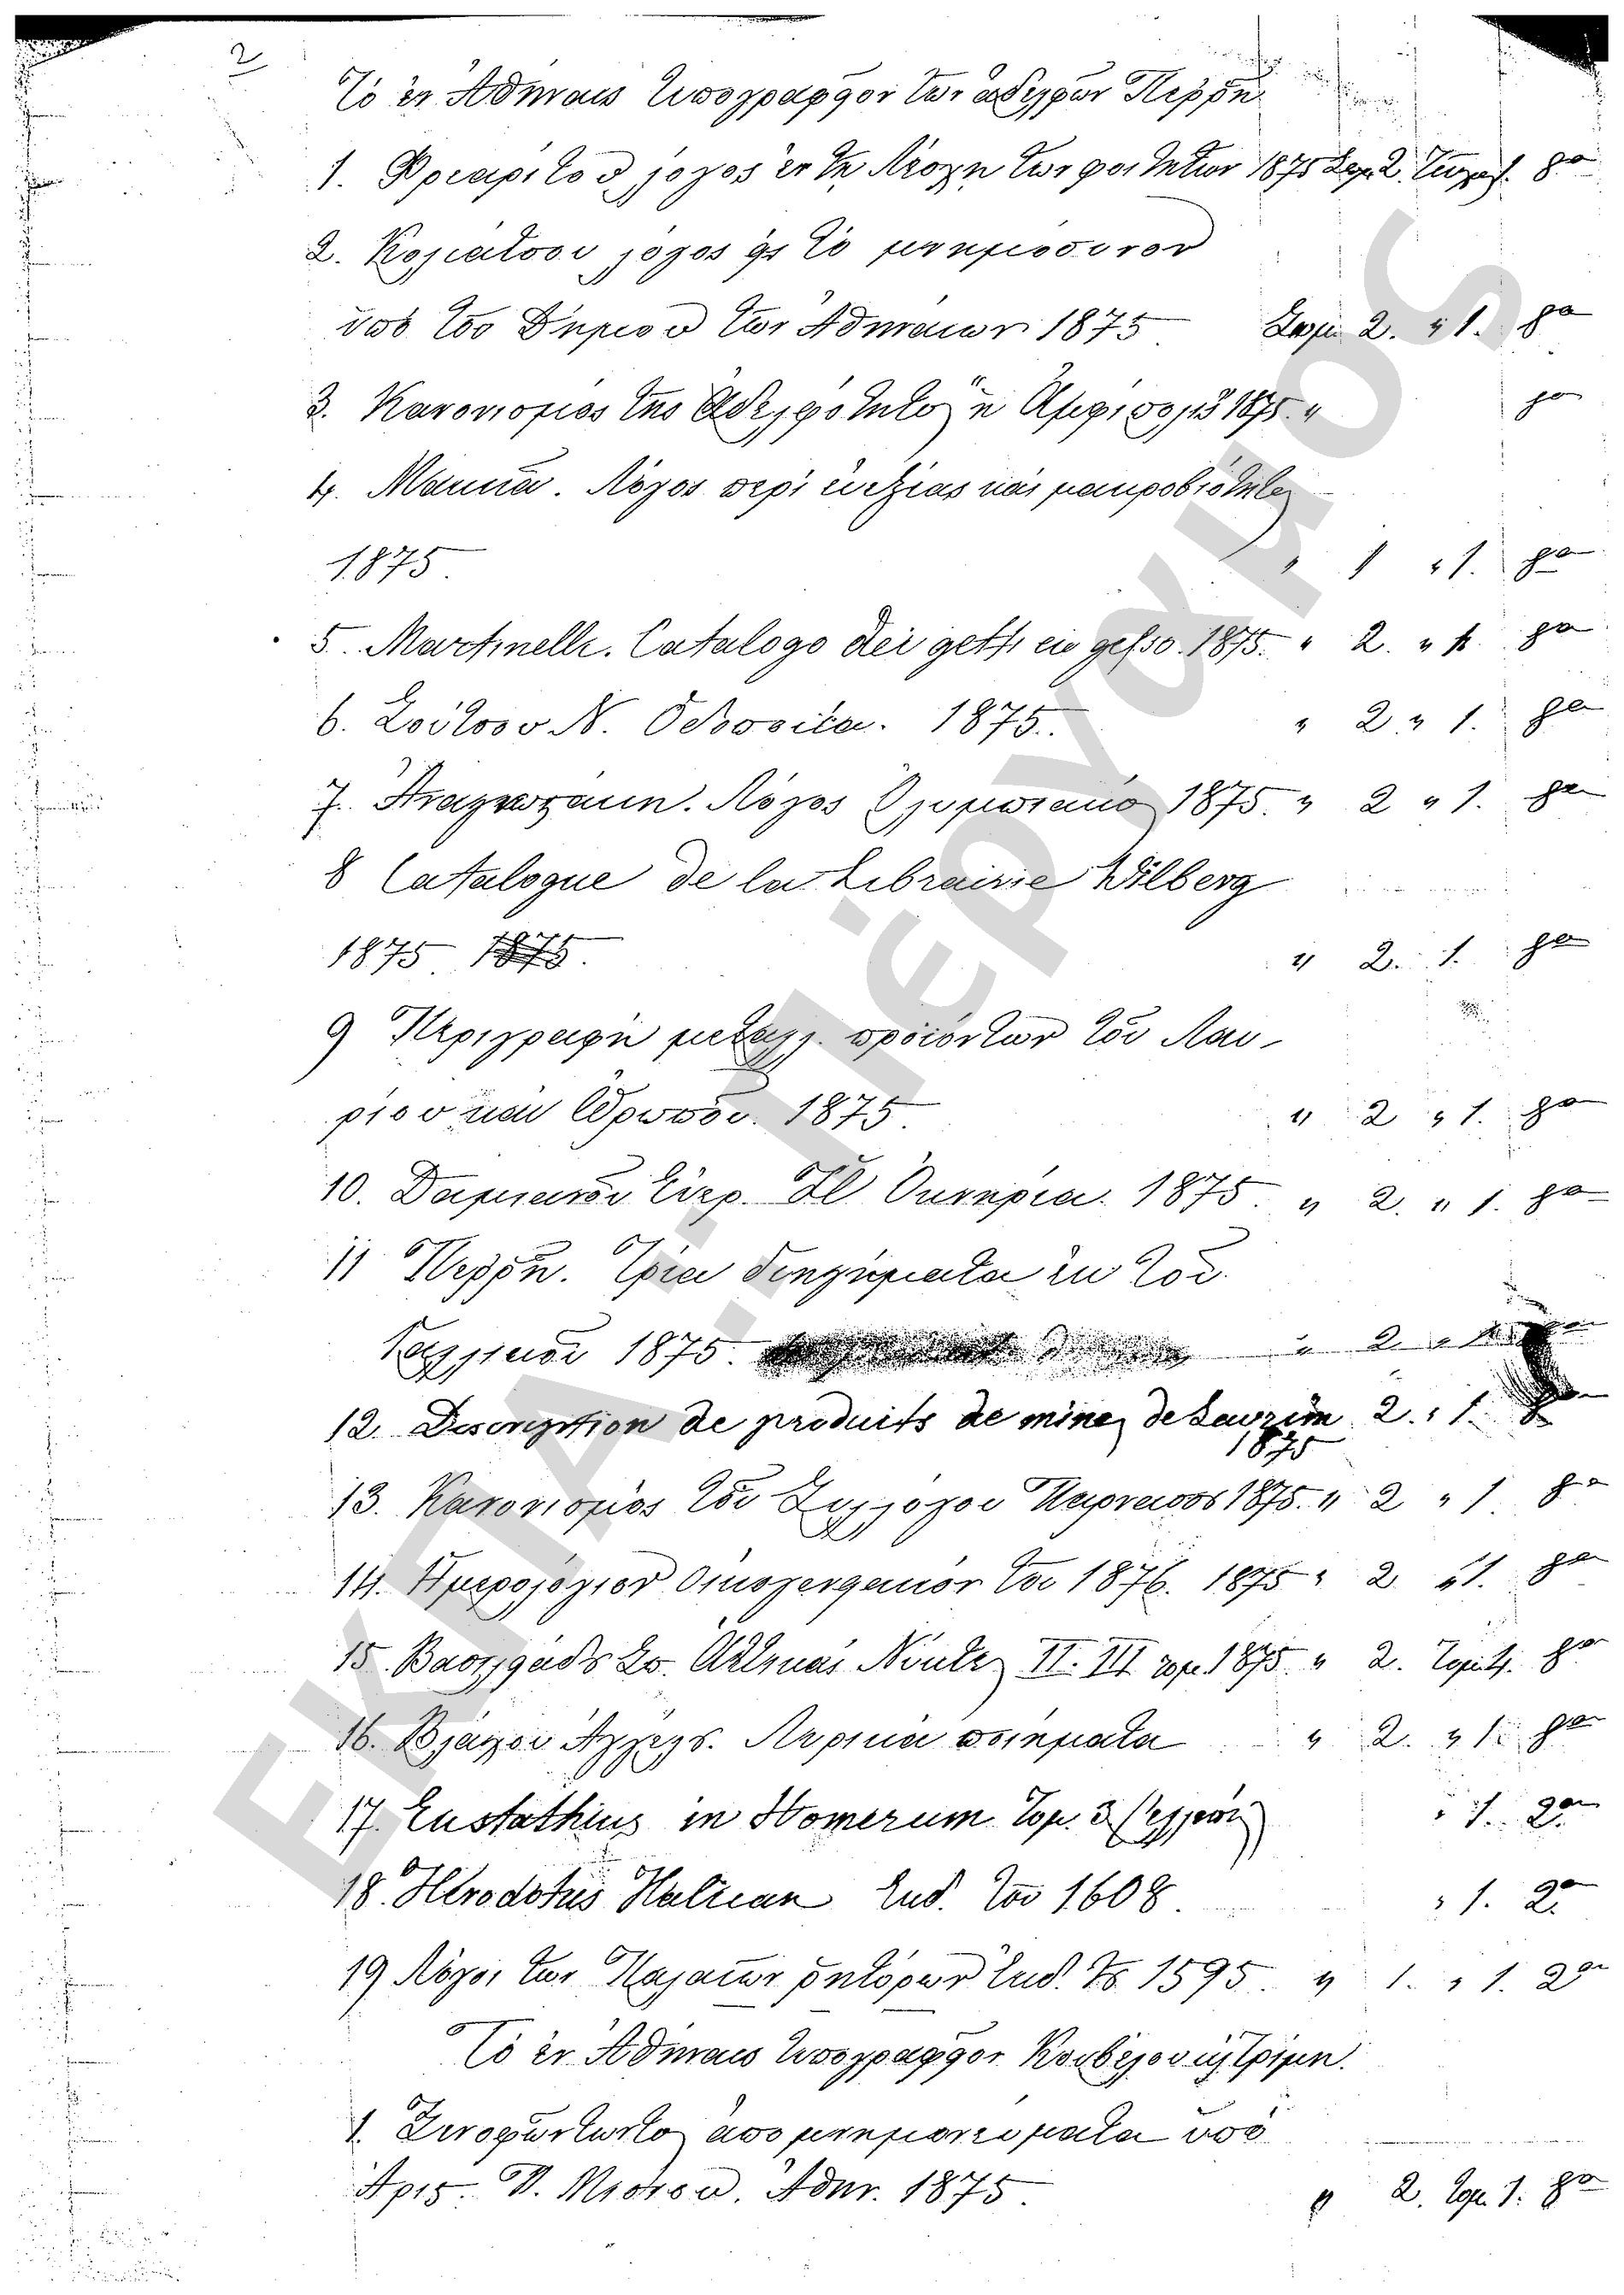 2
Τὸ ἐν Ἀθήναις τυπογραφεῖον τῶν ἀδελφῶν Περρῆ
1. Φρεαρίτου λόγος ἐν τῇ Λέσχῃ τῶν φοιτητῶν 1875 Σωμ. 2. 8ον
2. λόγος εἰς τὸ μνημόσυνον
ὑπὸ τοῦ Δήμου τῶν Ἀθηναίων 1875 Σωμ. 2. " 1. 8ον
3. Κανονισμὸς τῆς Ἀδελφότητος ἡ Ἀμφίπολις 1875. " 8ον
4. Μακκᾶ. Λόγος περὶ εὐεξίας καὶ μακροβιότητος
1875 " 1 " 1. 8ον
5. Martinelli. Catalogo dei getti in gesso. 1875. " 2. " 1. 8ον
6. Σούτσου Ν. 1875. " 2 " 1. 8ον
7. Ἀναγνωστάκη. Λόγος Ὀλυμπιακὸς 1875. " 2 " 1. 8ον
8 Catalogue de la Librairie Wilberg
1875 " 2. 1. 8ον
9 Περιγραφὴ μεταλλ. προϊόντων τοῦ Λαυ-
ρίου καὶ Ὠρωποῦ. 1875 " 2 " 1. 8ον
10. Δαμιανοῦ 1875 " 2. " 1. 8ον
11 Περρῆ. Τρία διηγήματα ἐκ τοῦ
Γαλλικοῦ 1875. " 2 "
12. Description de produits de mines de Laurium 2. " 1. 8
1875
13. Κανονισμὸς τοῦ Συλλόγου Παρνασσὸς 1875. " 2 " 1 8ον
14. Ἡμερολόγιον οἰκογενειακὸν τοῦ 1876. 1875 " 2 " 1. 8ον
15. Βασιλειάδου Σπ. Ἀττικαὶ Νύκτες II. III τομ. 1875 " 2. 8ον
16. Βλάχου Ἀγγέλου. Λυρικὰ ποιήματα " 2. " 1. 8ον
17. Eustathius in Homerum Τομ. 3 " 1. 2ον
18. Herodotus Ἐκδ. τοῦ 1608. " 1. 2ον
19 Λόγοι τῶν Παλαιῶν ῥητόρων ἐκδ. τοῦ 1595. " 1. " 1. 2ον
Τὸ ἐν Ἀθήναις τυπογραφεῖον Κουβέλου καὶ Τρίμη.
1. Ξενοφῶντος ἀπομνημονεύματα ὑπὸ
Ἀριστ. Ἀθην. 1875. " 2. Τομ. 1. 8ον
ΕΚΠΑ-Πέργαμος